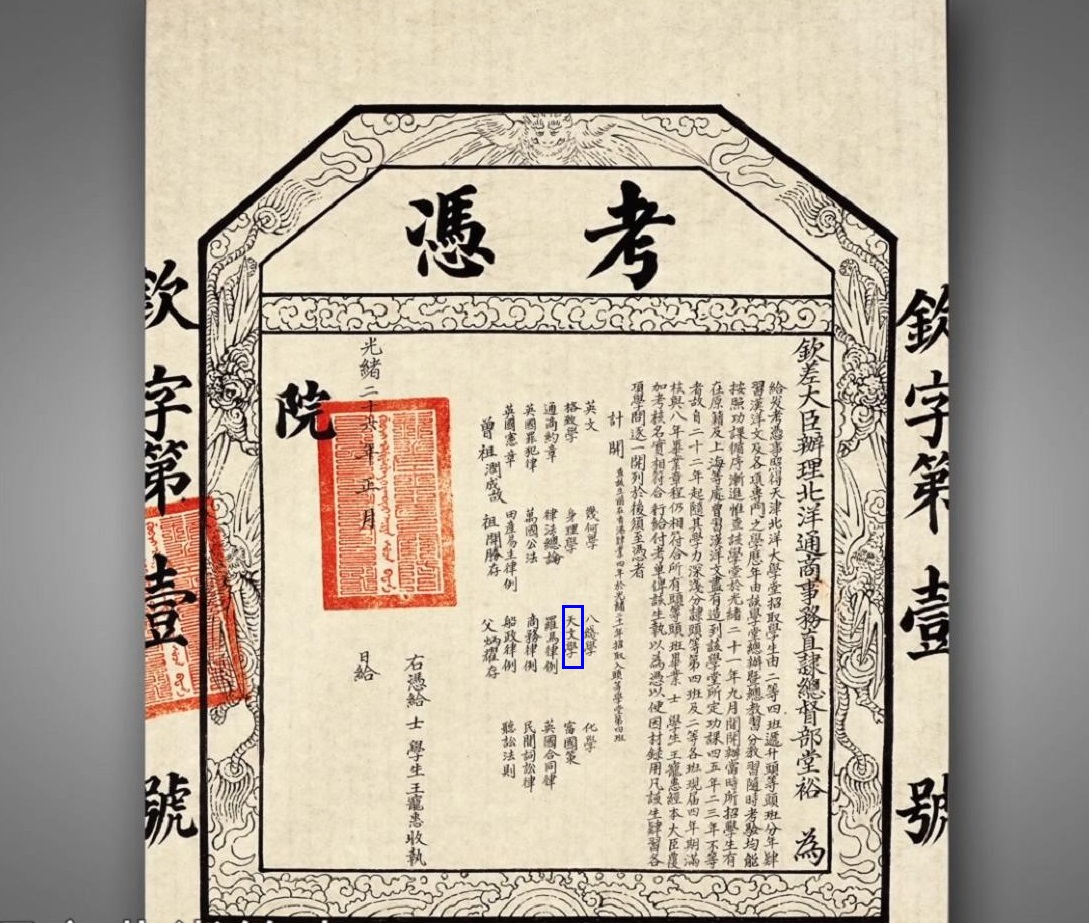 考憑
欽字第壹號
欽差大臣辦理北洋通商事務直隸總督部堂裕 為
給發考憑事照得天津北洋大學堂招取學生由二等四班遞升頭等頭班分年肄
習漢洋文及各項專門之學應年由該學堂總辦暨總教習分教習隨時考驗均能
按照功課循序漸進惟查該學堂於光緒二十一年九月間開辦當時所招學生有
在原籍及上海等處曾習漢洋文盡有造到該學堂所定功課四五年二三年不等
者故自二十二年起隨其學力深淺分隸頭等第四班及二等各班現屆四年期滿
核與八年畢業章程仍相符合所有頭等頭班畢業 士 學生王寵惠經本大臣覆
加考核名實相符合行給付考單俾該生執以為憑以便因材錄用凡該生肄習各
項學問逐一開列於後須至憑者
計開 查該生前在香港肄業四年於光緒二十一年招取入頭等學堂第四班
英文 幾何學 八線學 化學
格致學 身理學 天文學 富國策
通商約章 律法總論 羅馬律例 英國合同律
英國罪犯律 萬國公法 商務律例 民間詞訟律
英國憲章 田產易主律例 船政律例 聽訟法則
曾祖潤成歿 祖開勝存 父炳耀存
右憑給 士 學生王寵惠收執
光緒二十六年正月 日給
院
欽字第壹號